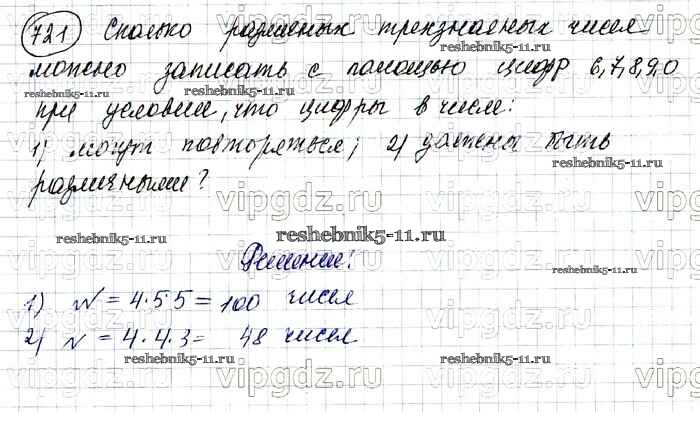 721 Сколько различных трехзначных чисел
reshebnik5-11.ru
можно записать с помощью цифр 6,7,8,9,0
reshebnik5-11.ru
при условии, что цифры в числе:
1) могут повторяться; 2) должны быть
reshebnik5-11.ru
vipgdz.ru vipgdz.ru vipgdz.ru
различными?
vipgdz.ru vipgdz.ru vipgdz.ru
reshebnik5-11.ru reshebnik5-11.ru
Решение:
reshebnik5-11.ru
vipgdz.ru vipgdz.ru vipgdz.ru
1) N = 4·5·5 = 100 чисел
2) N = 4·4·3 = 48 чисел
reshebnik5-11.ru reshebnik5-11.ru
vipgdz.ru vipgdz.ru vipgdz.ru